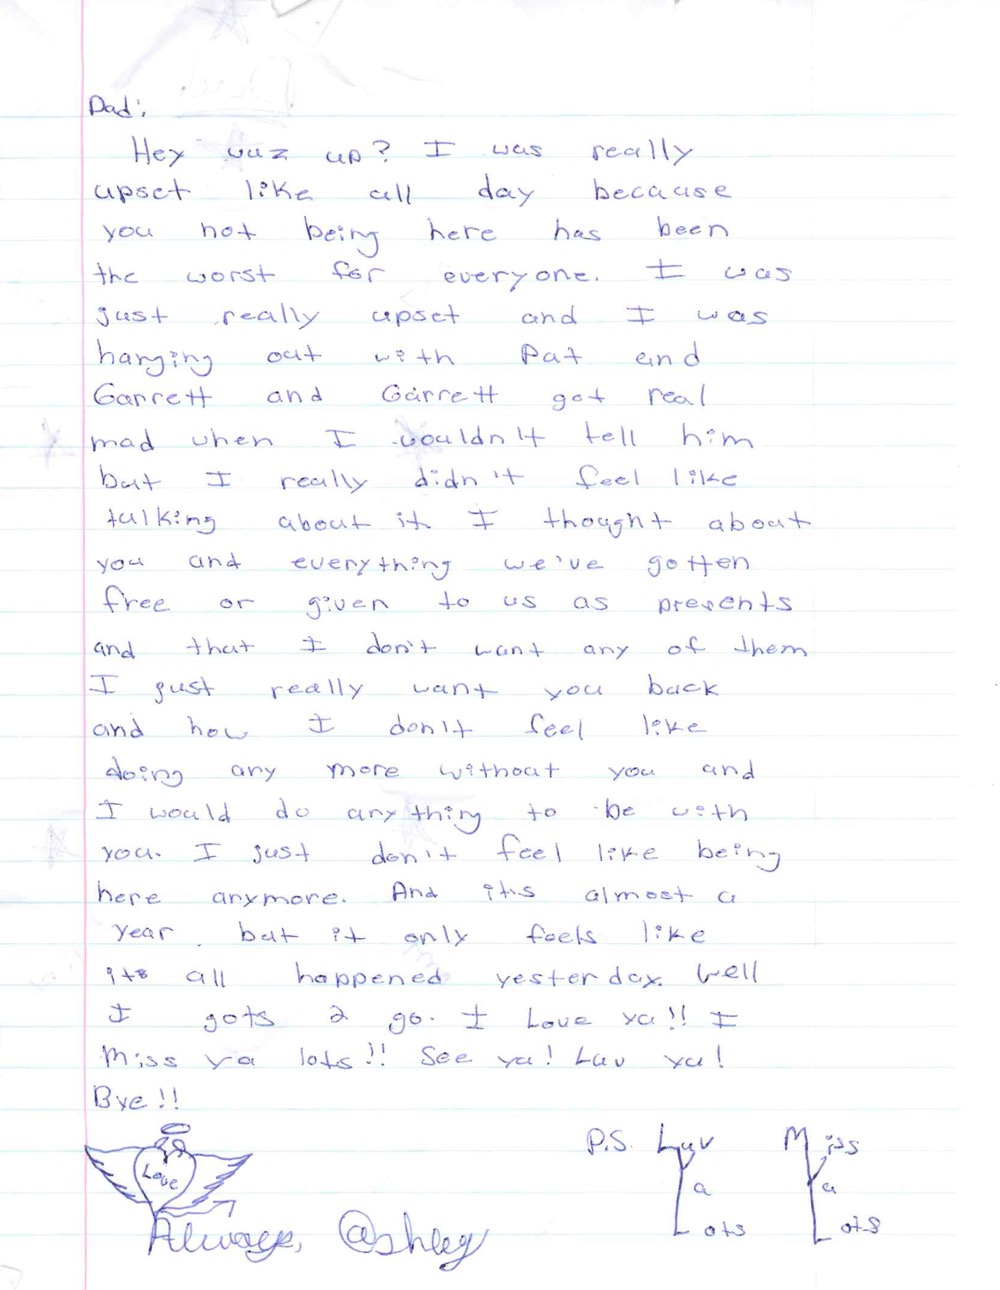 Dad;
Hey wuz up? I was really
upset like all day because
you not being here has been
the worst for everyone. I was
just really upset and I was
hanging out with Pat and
Garrett and Garrett got real
mad when I wouldn't tell him
but I really didn't feel like
talking about it. I thought about
you and everything we've gotten
free or given to us as presents
and that I don't want any of them
I just really want you back
and how I don't feel like
doing any more without you and
I would do anything to be with
you. I just don't feel like being
here anymore. And it's almost a
year, but it only feels like
its all happened yesterday. Well
I gots 2 go. I Love ya!! I
Miss ya lots!! See ya! Luv ya!
Bye!!
Love
Always, @shley
P.S. Luv Ya Lots
Miss Ya Lots